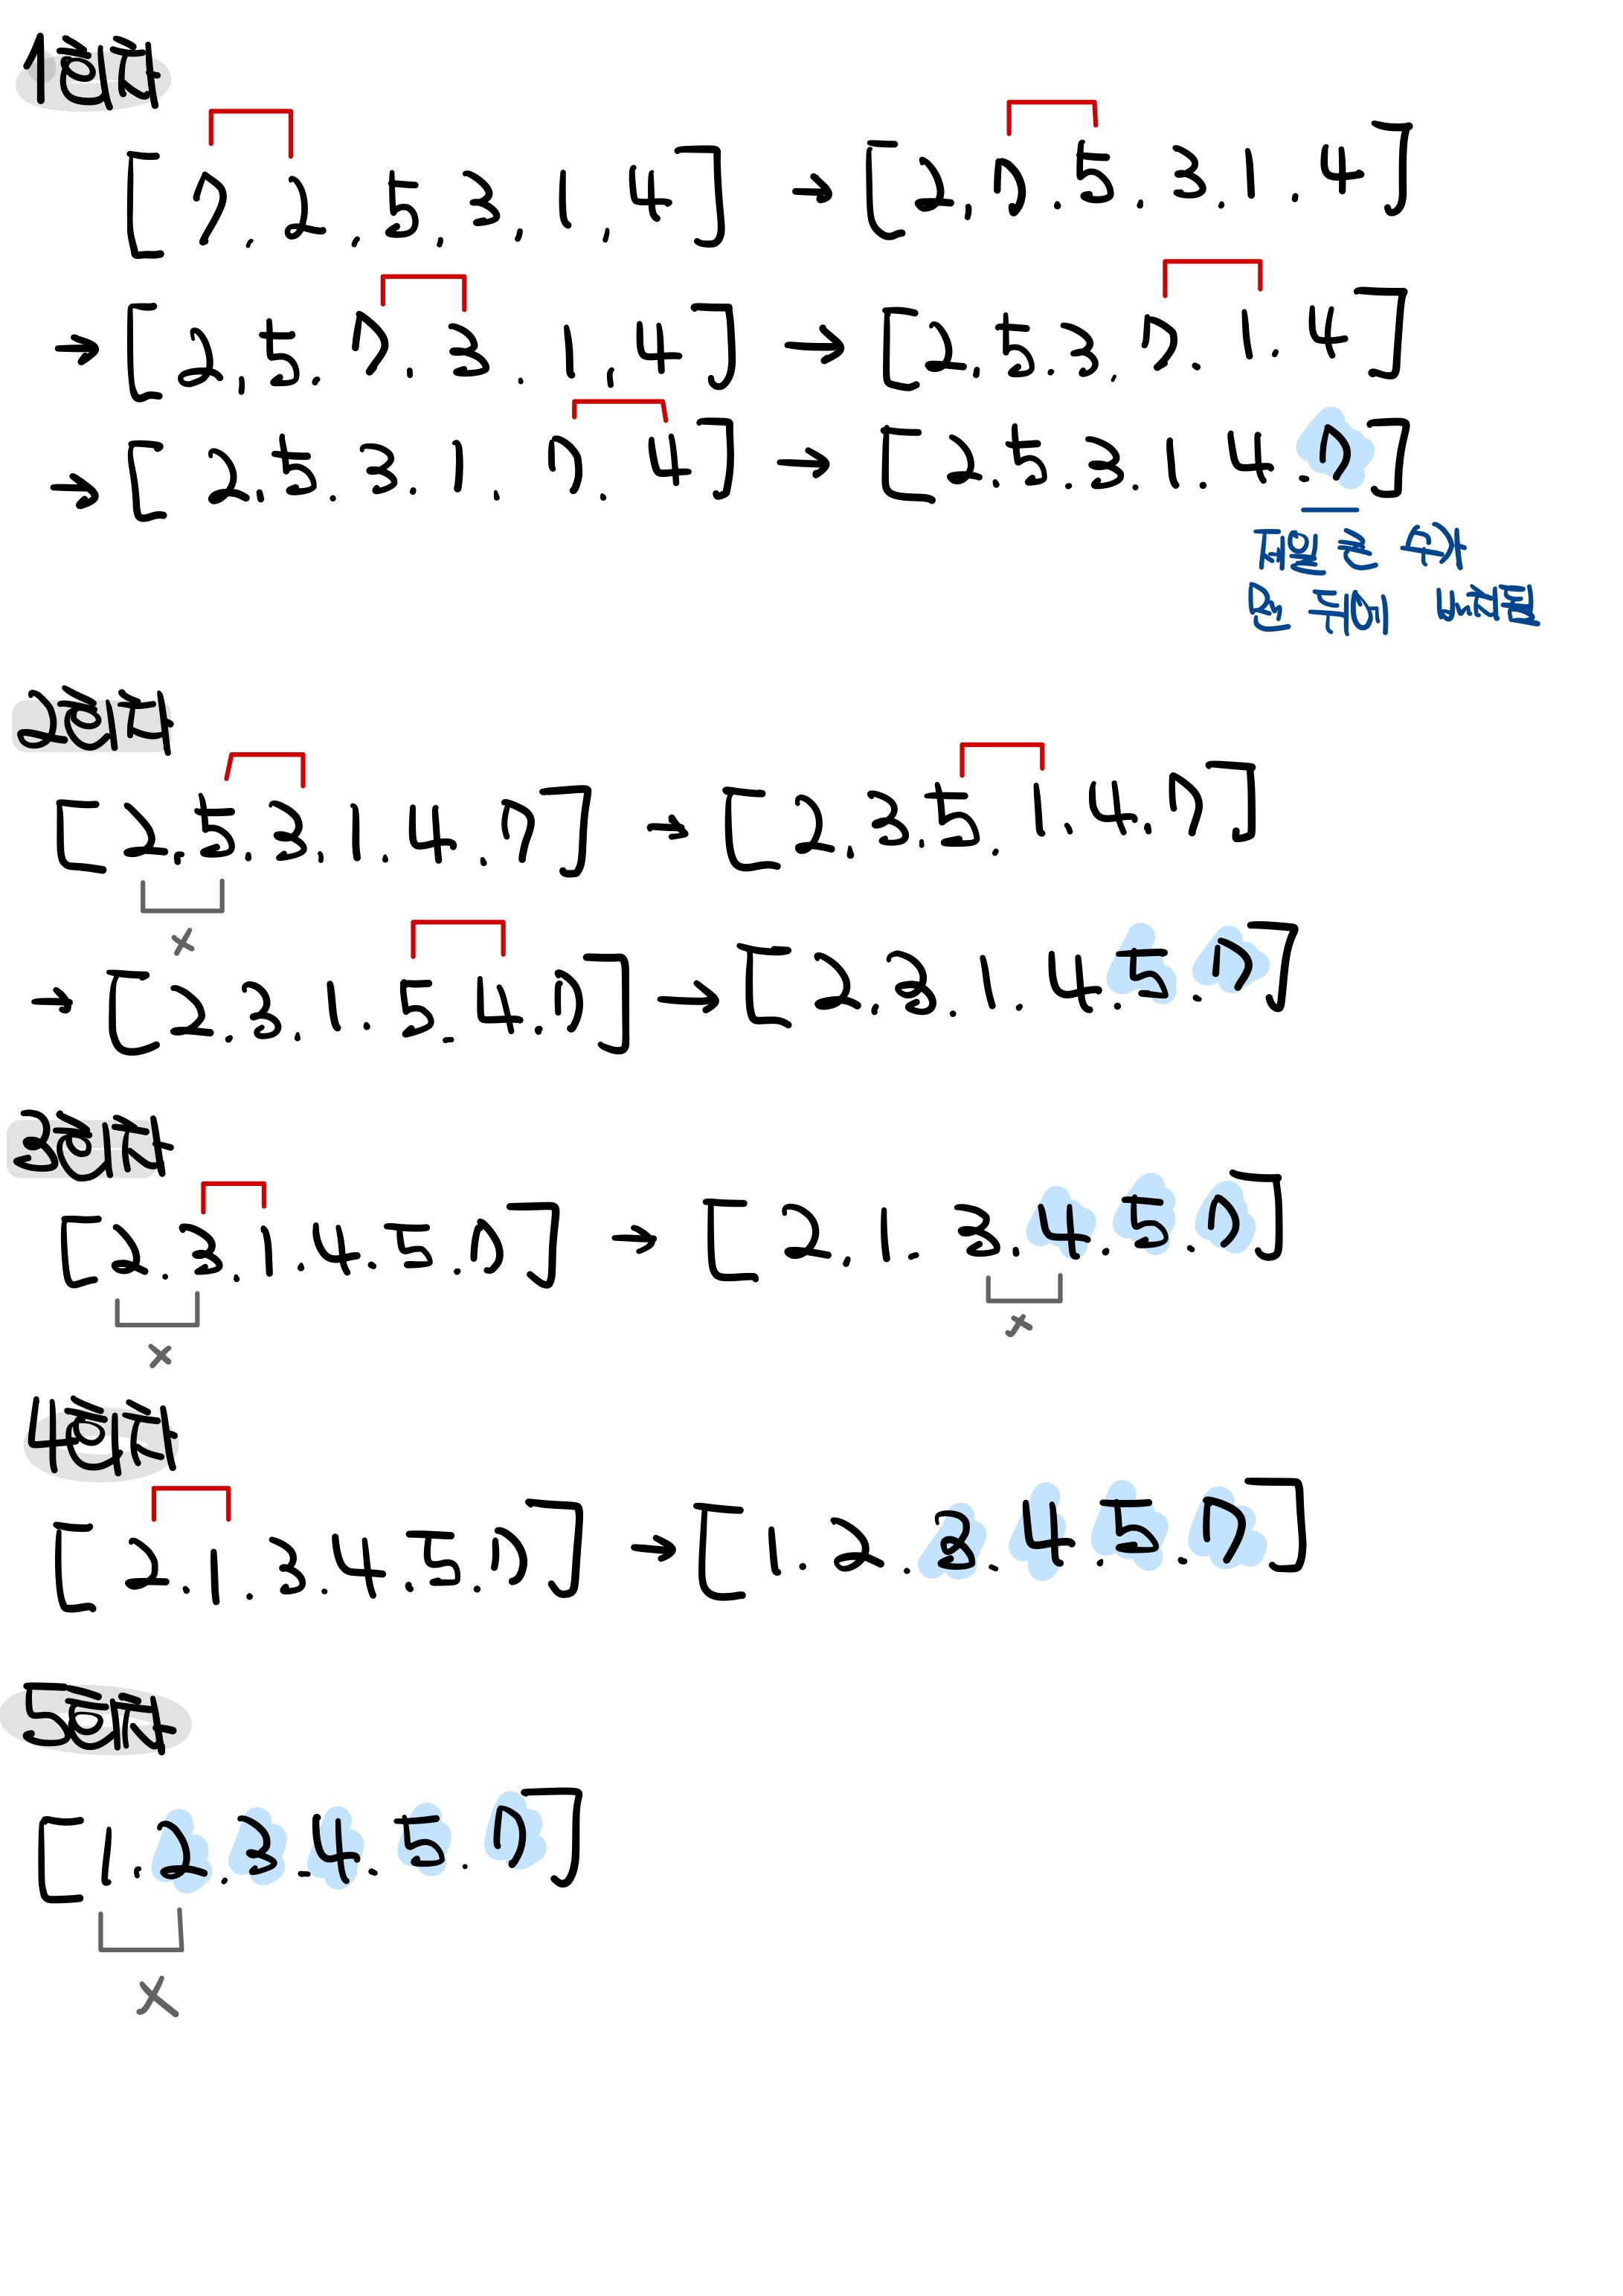 1회차
[7, 2, 5, 3, 1, 4] → [2, 7, 5, 3, 1, 4]
→ [2, 5, 7, 3, 1, 4] → [2, 5, 3, 7, 1, 4]
→ [2, 5, 3, 1, 7, 4] → [2, 5, 3, 1, 4, 7]
제일 큰 수가
맨 뒤에 배치됨
2회차
[2, 5, 3, 1, 4, 7] → [2, 3, 5, 1, 4, 7]
x
→ [2, 3, 1, 5, 4, 7] → [2, 3, 1, 4, 5, 7]
3회차
[2, 3, 1, 4, 5, 7] → [2, 1, 3, 4, 5, 7]
x x
4회차
[2, 1, 3, 4, 5, 7] → [1, 2, 3, 4, 5, 7]
5회차
[1, 2, 3, 4, 5, 7]
x